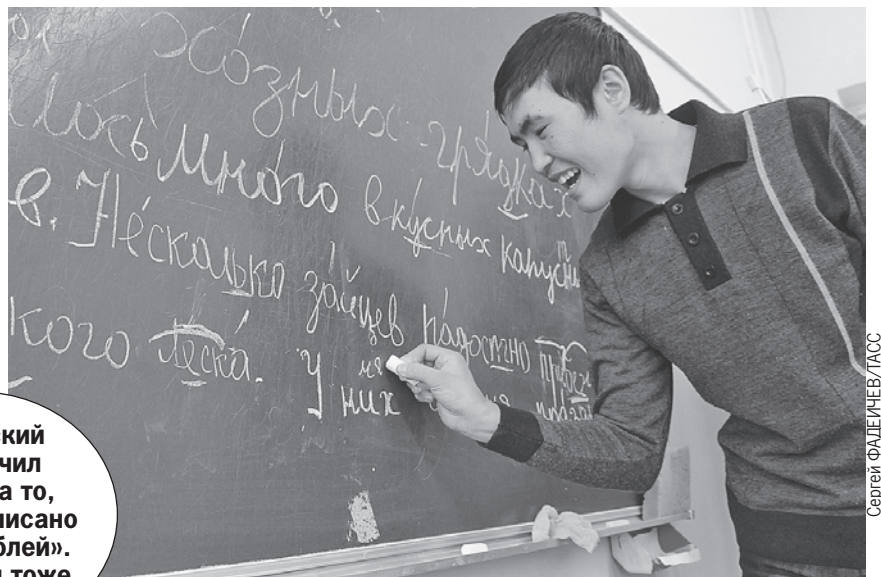 грядках
лось много вкусных капустн
в. Несколько зайцев радостно
кого леска. У них
ский
чил
а то,
писано
блей».
тоже
Сергей ФАДЕИЧЕВ/ТАСС